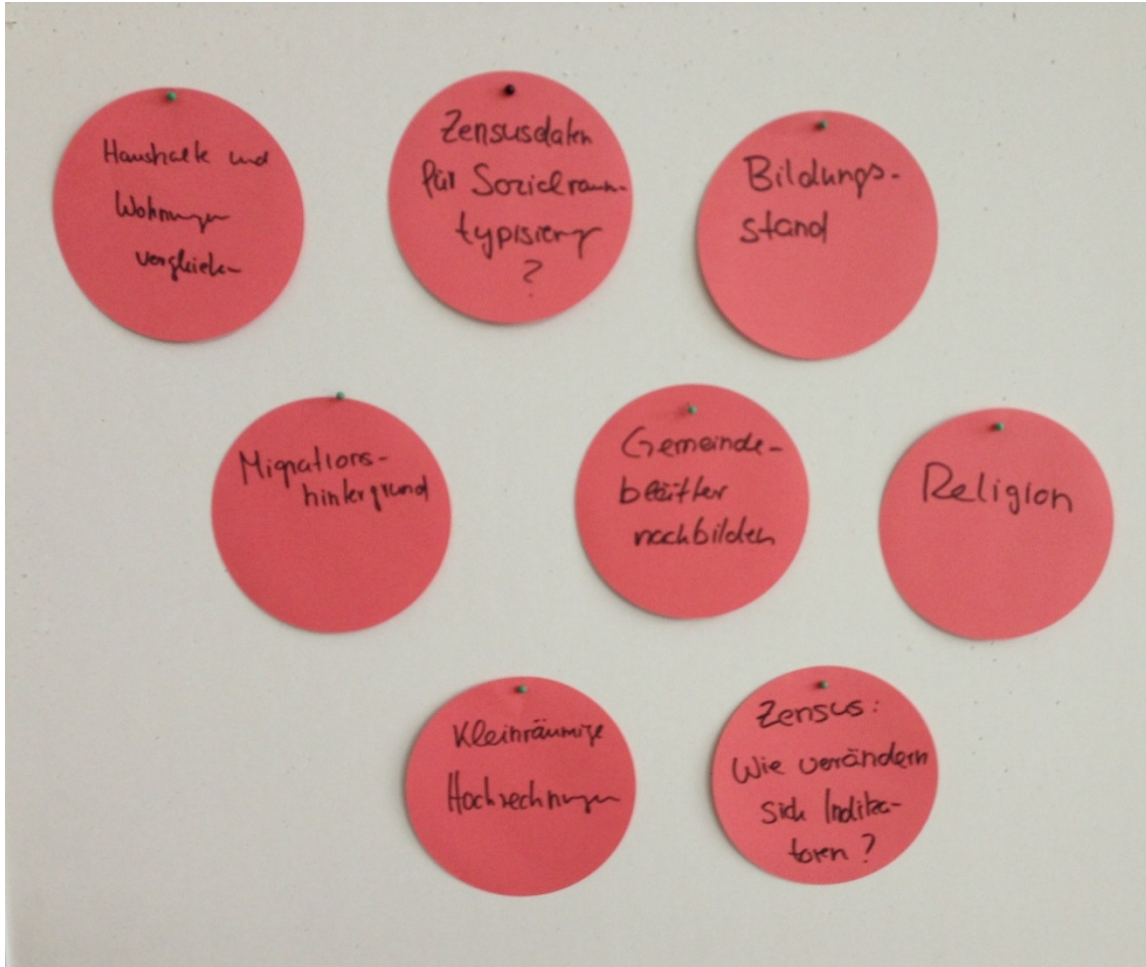 Haushalte und
Wohnungen
vergleichen
Zensusdaten
für Sozialraum-
typisierung
?
Bildungs-
stand
Migrations-
hintergrund
Gemeinde-
blätter
nachbilden
Religion
Kleinräumige
Hochrechnungen
Zensus:
Wie verändern
sich Indika-
toren?